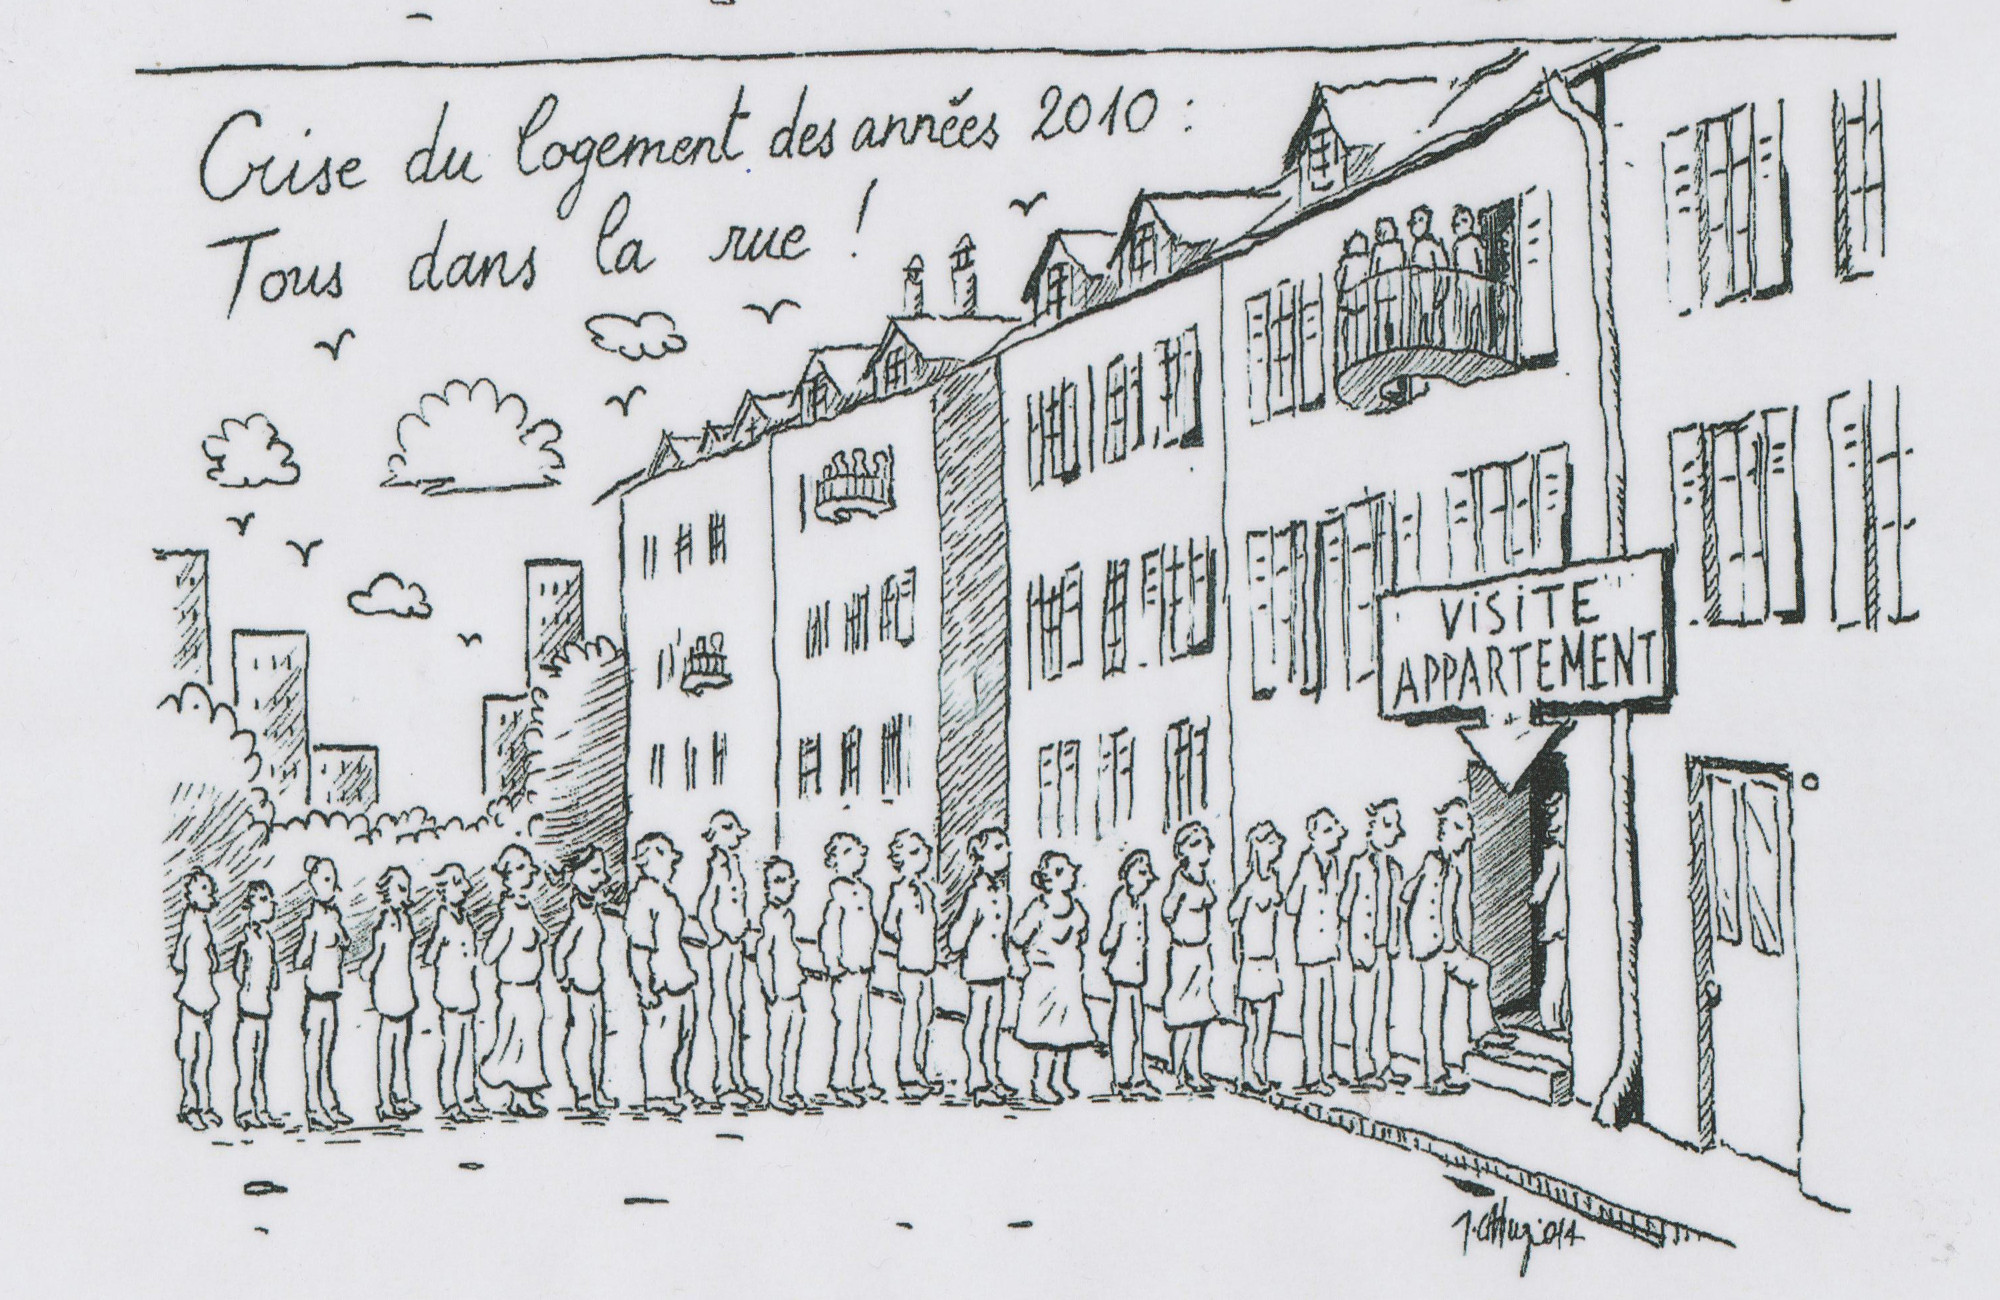 Crise du logement des années 2010 :
Tous dans la rue !
ViSiTE
APPARTEMENT